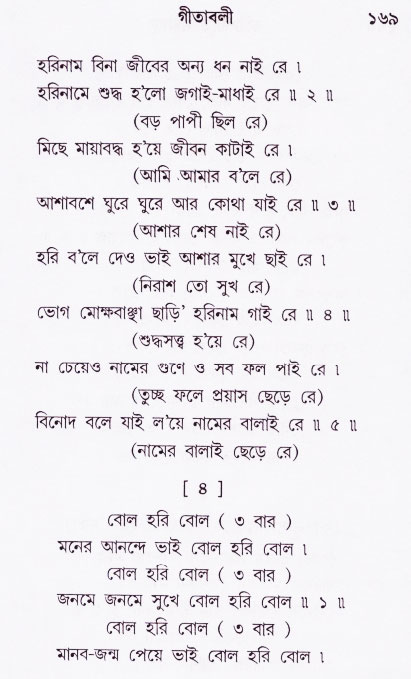 গীতাবলী ১৬৯
হরিনাম বিনা জীবের অন্য ধন নাই রে ৷
হরিনামে শুদ্ধ হ'লো জগাই-মাধাই রে ॥ ২ ॥
(বড় পাপী ছিল রে)
মিছে মায়াবদ্ধ হ'য়ে জীবন কাটাই রে ৷
(আমি আমার ব'লে রে)
আশাবশে ঘুরে ঘুরে আর কোথা যাই রে ॥ ৩ ॥
(আশার শেষ নাই রে)
হরি ব'লে দেও ভাই আশার মুখে ছাই রে ৷
(নিরাশ তো সুখ রে)
ভোগ মোক্ষবাঞ্ছা ছাড়ি' হরিনাম গাই রে ॥ ৪ ॥
(শুদ্ধসত্ত্ব হ'য়ে রে)
না চেয়েও নামের গুণে ও সব ফল পাই রে ৷
(তুচ্ছ ফলে প্রয়াস ছেড়ে রে)
বিনোদ বলে যাই ল'য়ে নামের বালাই রে ॥ ৫ ॥
(নামের বালাই ছেড়ে রে)
[ ৪ ]
বোল হরি বোল ( ৩ বার )
মনের আনন্দে ভাই বোল হরি বোল ৷
বোল হরি বোল ( ৩ বার )
জনমে জনমে সুখে বোল হরি বোল ॥ ১ ॥
বোল হরি বোল ( ৩ বার )
মানব-জন্ম পেয়ে ভাই বোল হরি বোল ৷